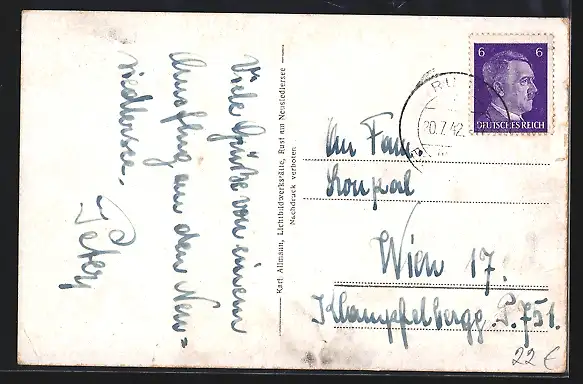 Viele Grüße von einem
Ausflug an den Neu=
siedlersee.
Peter
Karl Allmann, Lichtbildwerkstätte, Rust am Neusiedlersee
Nachdruck verboten.
6 6
DEUTSCHES REICH
RU
20.7.42
An Fam
Konpal
Wien 17.
Klampfelbergg. P. 751.
22€